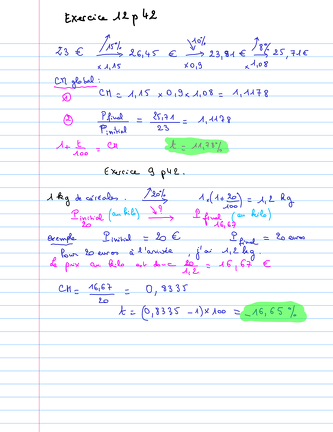 Exercice 12 p 42
15% 10% 8%
23 € 26,45 € 23,81 € 25,71 €
×1,15 ×0,9 ×1,08
CM global :
① CM = 1,15 × 0,9 × 1,08 = 1,1178
② P final / P initial = 25,71 / 23 = 1,1178
1 + t/100 = CM t = 11,78%
Exercice 9 p 42.
1 kg de céréales. 20% 1×(1+20/100) = 1,2 kg
P initial (au kilo) ? P final (au kilo)
20 16,67
exemple P initial = 20 € P final = 20 euros
Pour 20 euros à l'arrivée, j'ai 1,2 kg.
Le prix au kilo est donc 20/1,2 = 16,67 €
CM = 16,67/20 = 0,8335
t = (0,8335 - 1) × 100 = -16,65 %